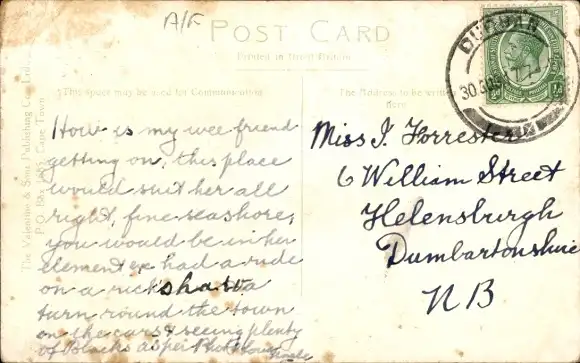 A/F
POST CARD
Printed in Great Britain
This space may be used for Communication
The Address to be written here
The Valentine & Sons Publishing Co. Ltd.
P.O. Box 1685, Cape Town
DURBAN
30
½
How is my wee friend
getting on, this place
would suit her all
right, fine seashore,
you would be in her
element had a ride
on a rickshaw a
turn round the town
on the cars & seeing plenty
of Blacks as per
Miss J. Forrester
6 William Street
Helensburgh
Dumbartonshire
NB